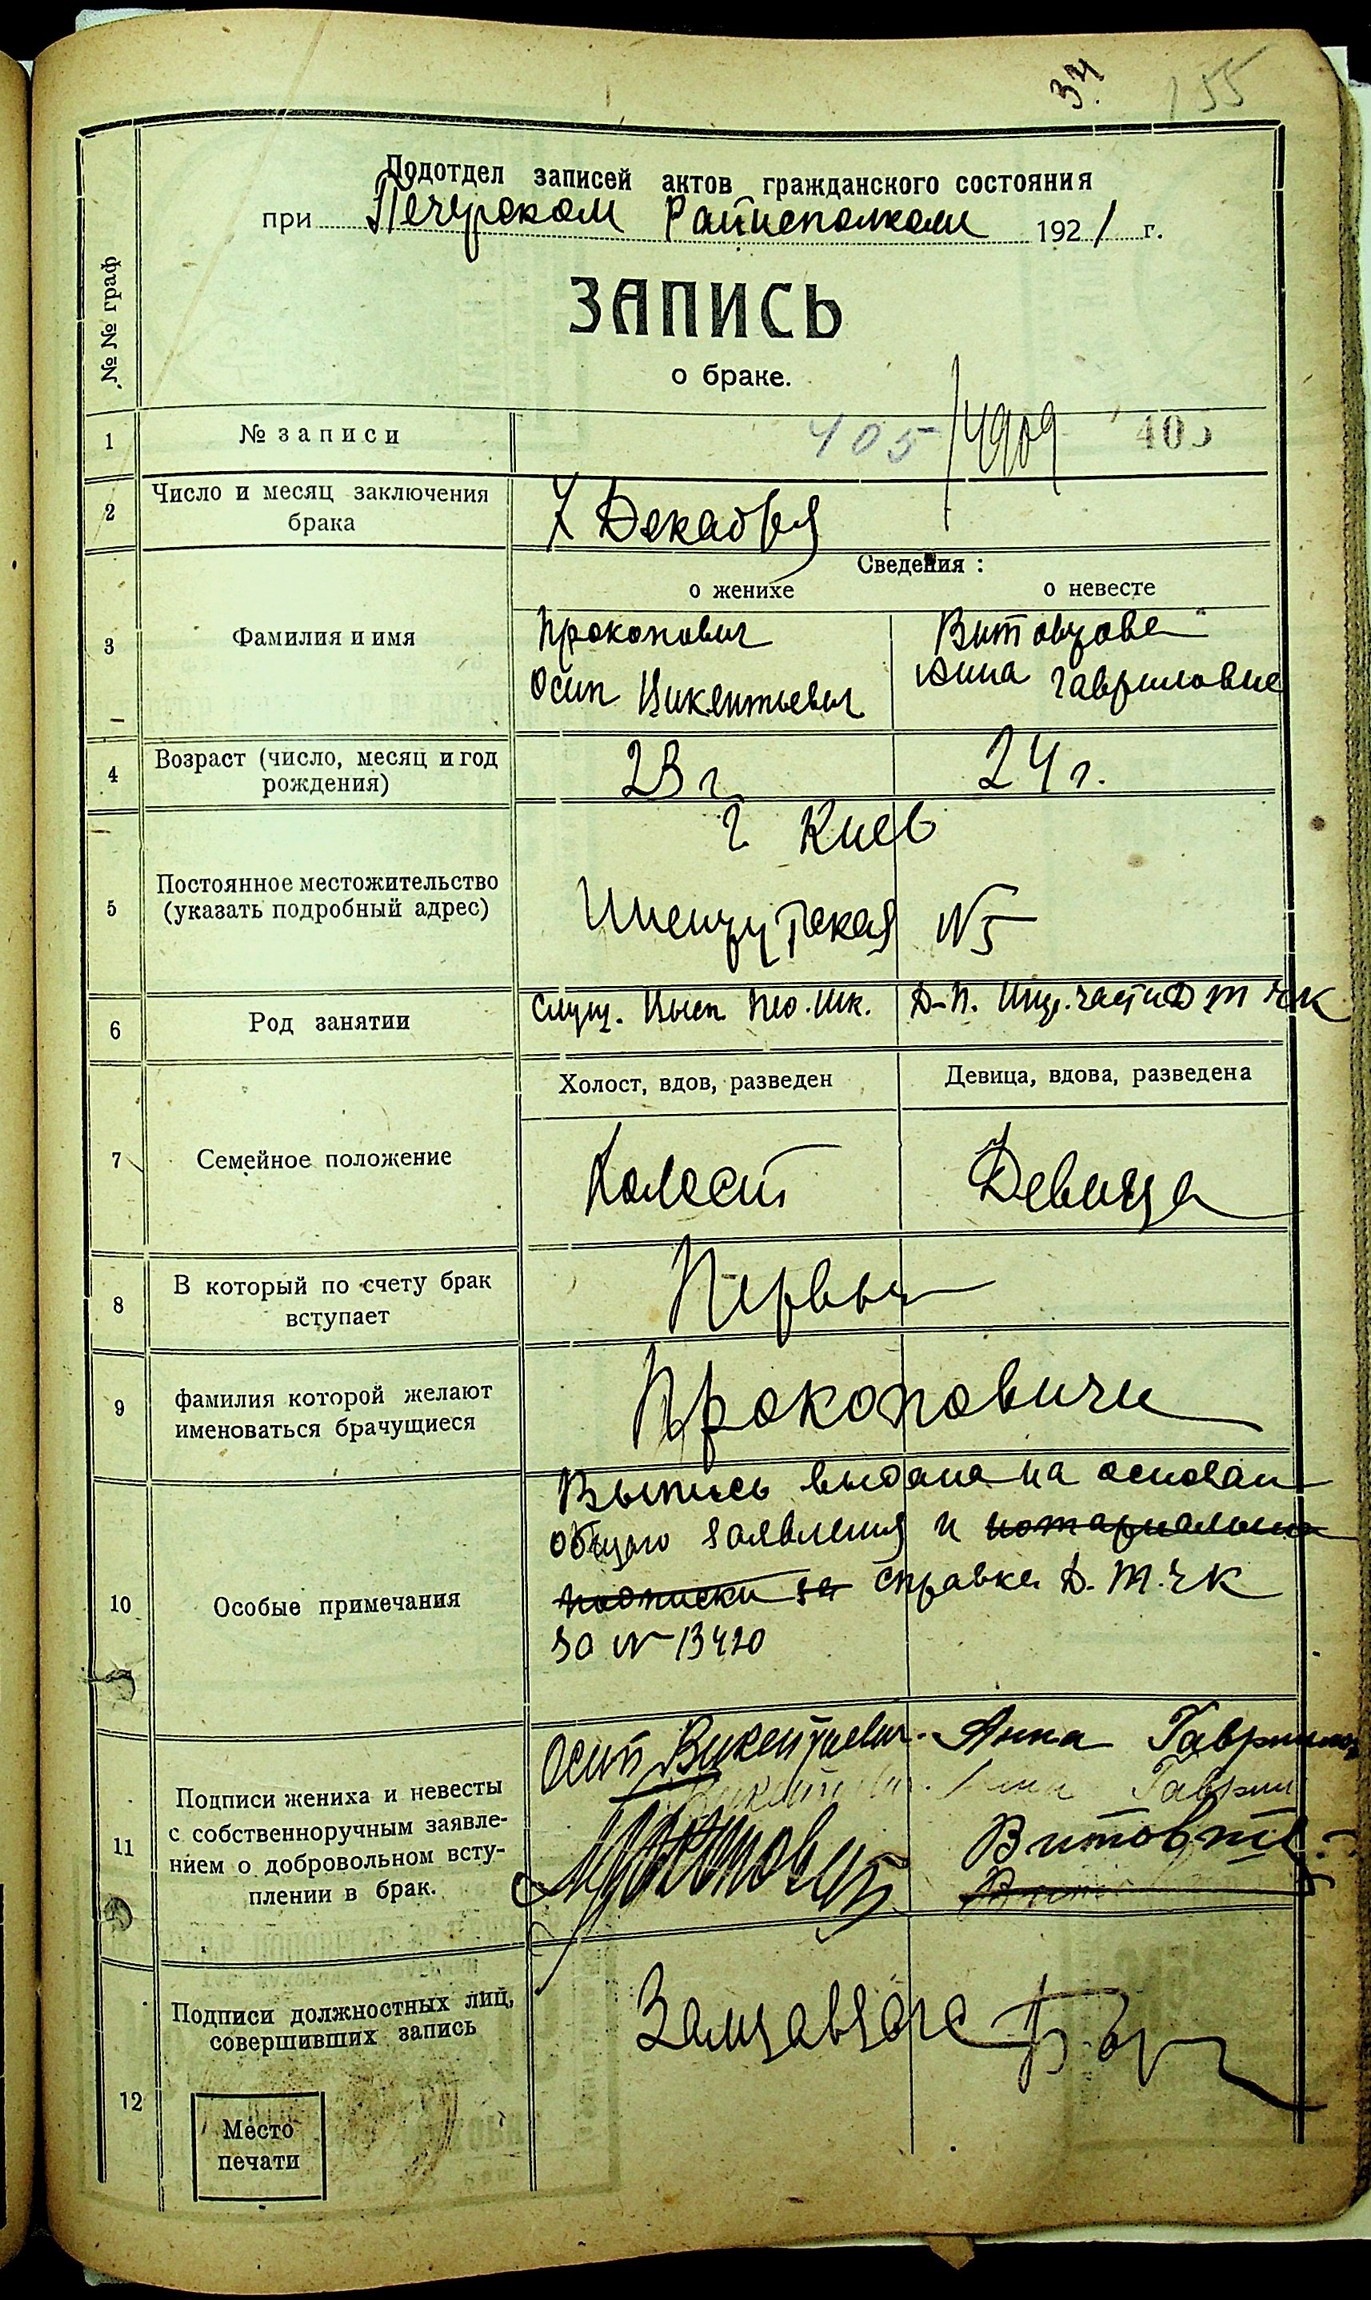 34
155
Подотдел записей актов гражданского состояния
при Печерском Райисполкоме 1921 г.
ЗАПИСЬ
о браке.
№ № граф
1 № записи 405 /4909 405
2 Число и месяц заключения брака
7 Декабря
Сведения :
о женихе о невесте
3 Фамилия и имя
Прокопович
Осип Викентьевич
Анна Гавриловна
4 Возраст (число, месяц и год рождения)
23 г. 24 г.
5 Постоянное местожительство (указать подробный адрес)
г. Киев
Институтская № 5
6 Род занятии
Служ. Высш. Шк. Д.-П. части Д Т Ч К
7 Семейное положение
Холост, вдов, разведен Девица, вдова, разведена
Холост Девица
8 В который по счету брак вступает
Первый
9 фамилия которой желают именоваться брачущиеся
Прокоповичи
10 Особые примечания
Выпись выдана на основан
общего заявления и нотариально
подписки за справка Д. Т. Ч К
за № 13420
11 Подписи жениха и невесты
с собственноручным заявле-
нием о добровольном всту-
плении в брак.
Осип Викентьевич. Анна Гаврилов
Прокопович
12 Подписи должностных лиц,
совершивших запись
Место
печати